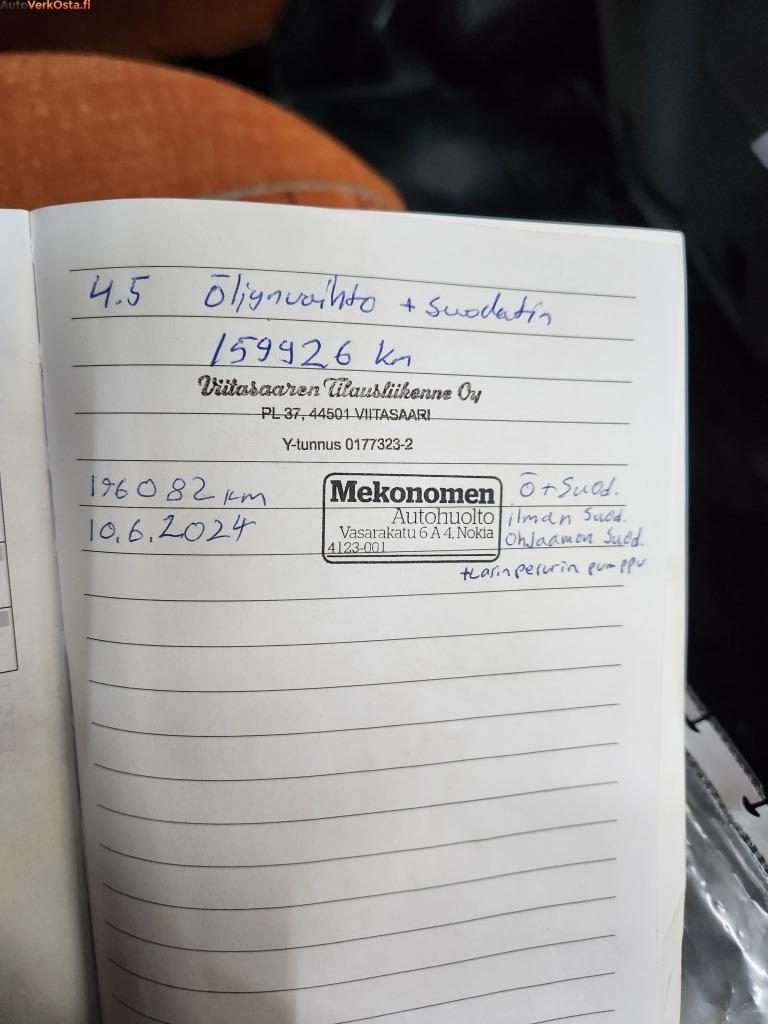 AutoVerkOsta.fi
4.5 Öljynvaihto + suodatin
159926 km
Viitasaaren Tilausliikenne Oy
PL 37, 44501 VIITASAARI
Y-tunnus 0177323-2
196082 km Mekonomen Ö+Suod.
10.6.2024 Autohuolto ilman Suod.
Vasarakatu 6 A 4, Nokia Ohjaamon Suod.
4123-001
+Lasinpesurin pumppu